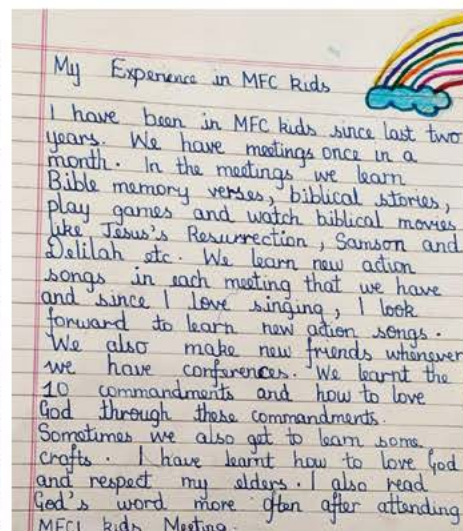 My Experience in MFC kids
I have been in MFC kids since last two
years. We have meetings once in a
month. In the meetings we learn
Bible memory verses, biblical stories,
play games and watch biblical movies
like Jesus's Resurrection, Samson and
Delilah etc. We learn new action
songs in each meeting that we have
and since I love singing, I look
forward to learn new action songs.
We also make new friends whenever
we have conferences. We learnt the
10 commandments and how to love
God through these commandments.
Sometimes we also get to learn some
crafts. I have learnt how to love God
and respect my elders. I also read
God's word more often after attending
MFCI kids Meeting.